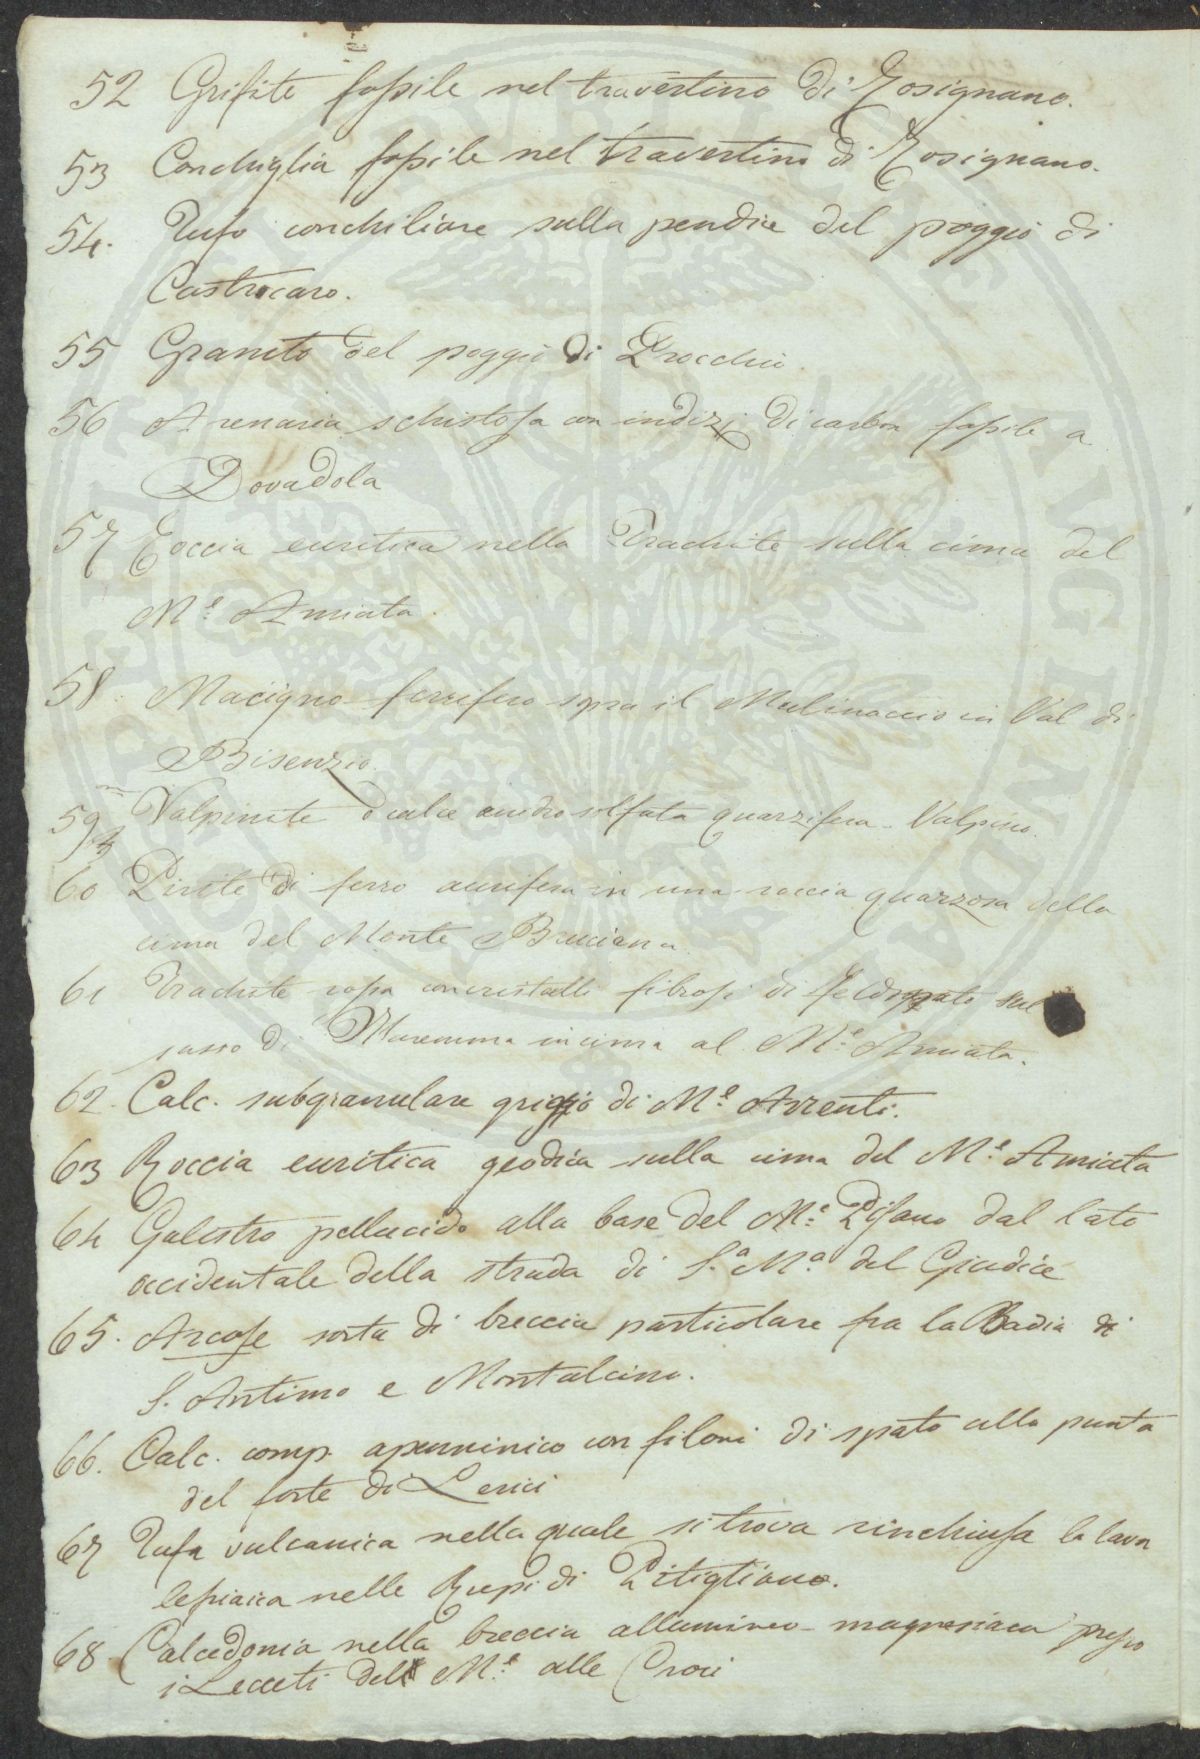 52 Grifite fossile nel travertino di Rosignano.
53 Conchiglia fossile nel travertino di Rosignano.
54. Tufo conchiliare sulla pendice del poggio di
Castrocaro.
55 Granito del poggio di Procchio.
56 Arenaria schistosa con indizj di carbon fossile a
Dovadola
57 Roccia euritica nella Trachite sulla cima del
M.e Amiata.
58. Macigno ferrifero sopra il Mulinaccio in Val di
Bisenzio.
59 Valpinite o calce anidro solfata quarzifera. Valpino.
60 Pirite di ferro aurifera in una roccia quarzosa della
cima del Monte Bruciana
61 Trachite rossa con cristalli fibrosi di feldspato sul
sasso di Maremma in cima al M.e Amiata.
62. Calc. subgranulare grigio di M.e Arrenti.
63 Roccia euritica geodica sulla cima del M.e Amiata
64 Galestro pellucido alla base del M.e Pisano dal lato
occidentale della strada di S.a M.a del Giudice
65. Arcose sorta di breccia particolare fra la Badia di
S. Antimo e Montalcino.
66. Calc. comp. apenninico con filoni di spato alla punta
del forte di Lerici
67 Tufa vulcanica nella quale si trova rinchiusa la lava
nelle Rupi di Pitigliano.
68 Calcedonia nella breccia allumineo-magnesiaca presso
i Lecceti del M.e alle Croci
PVBLICAE AVGENDAE